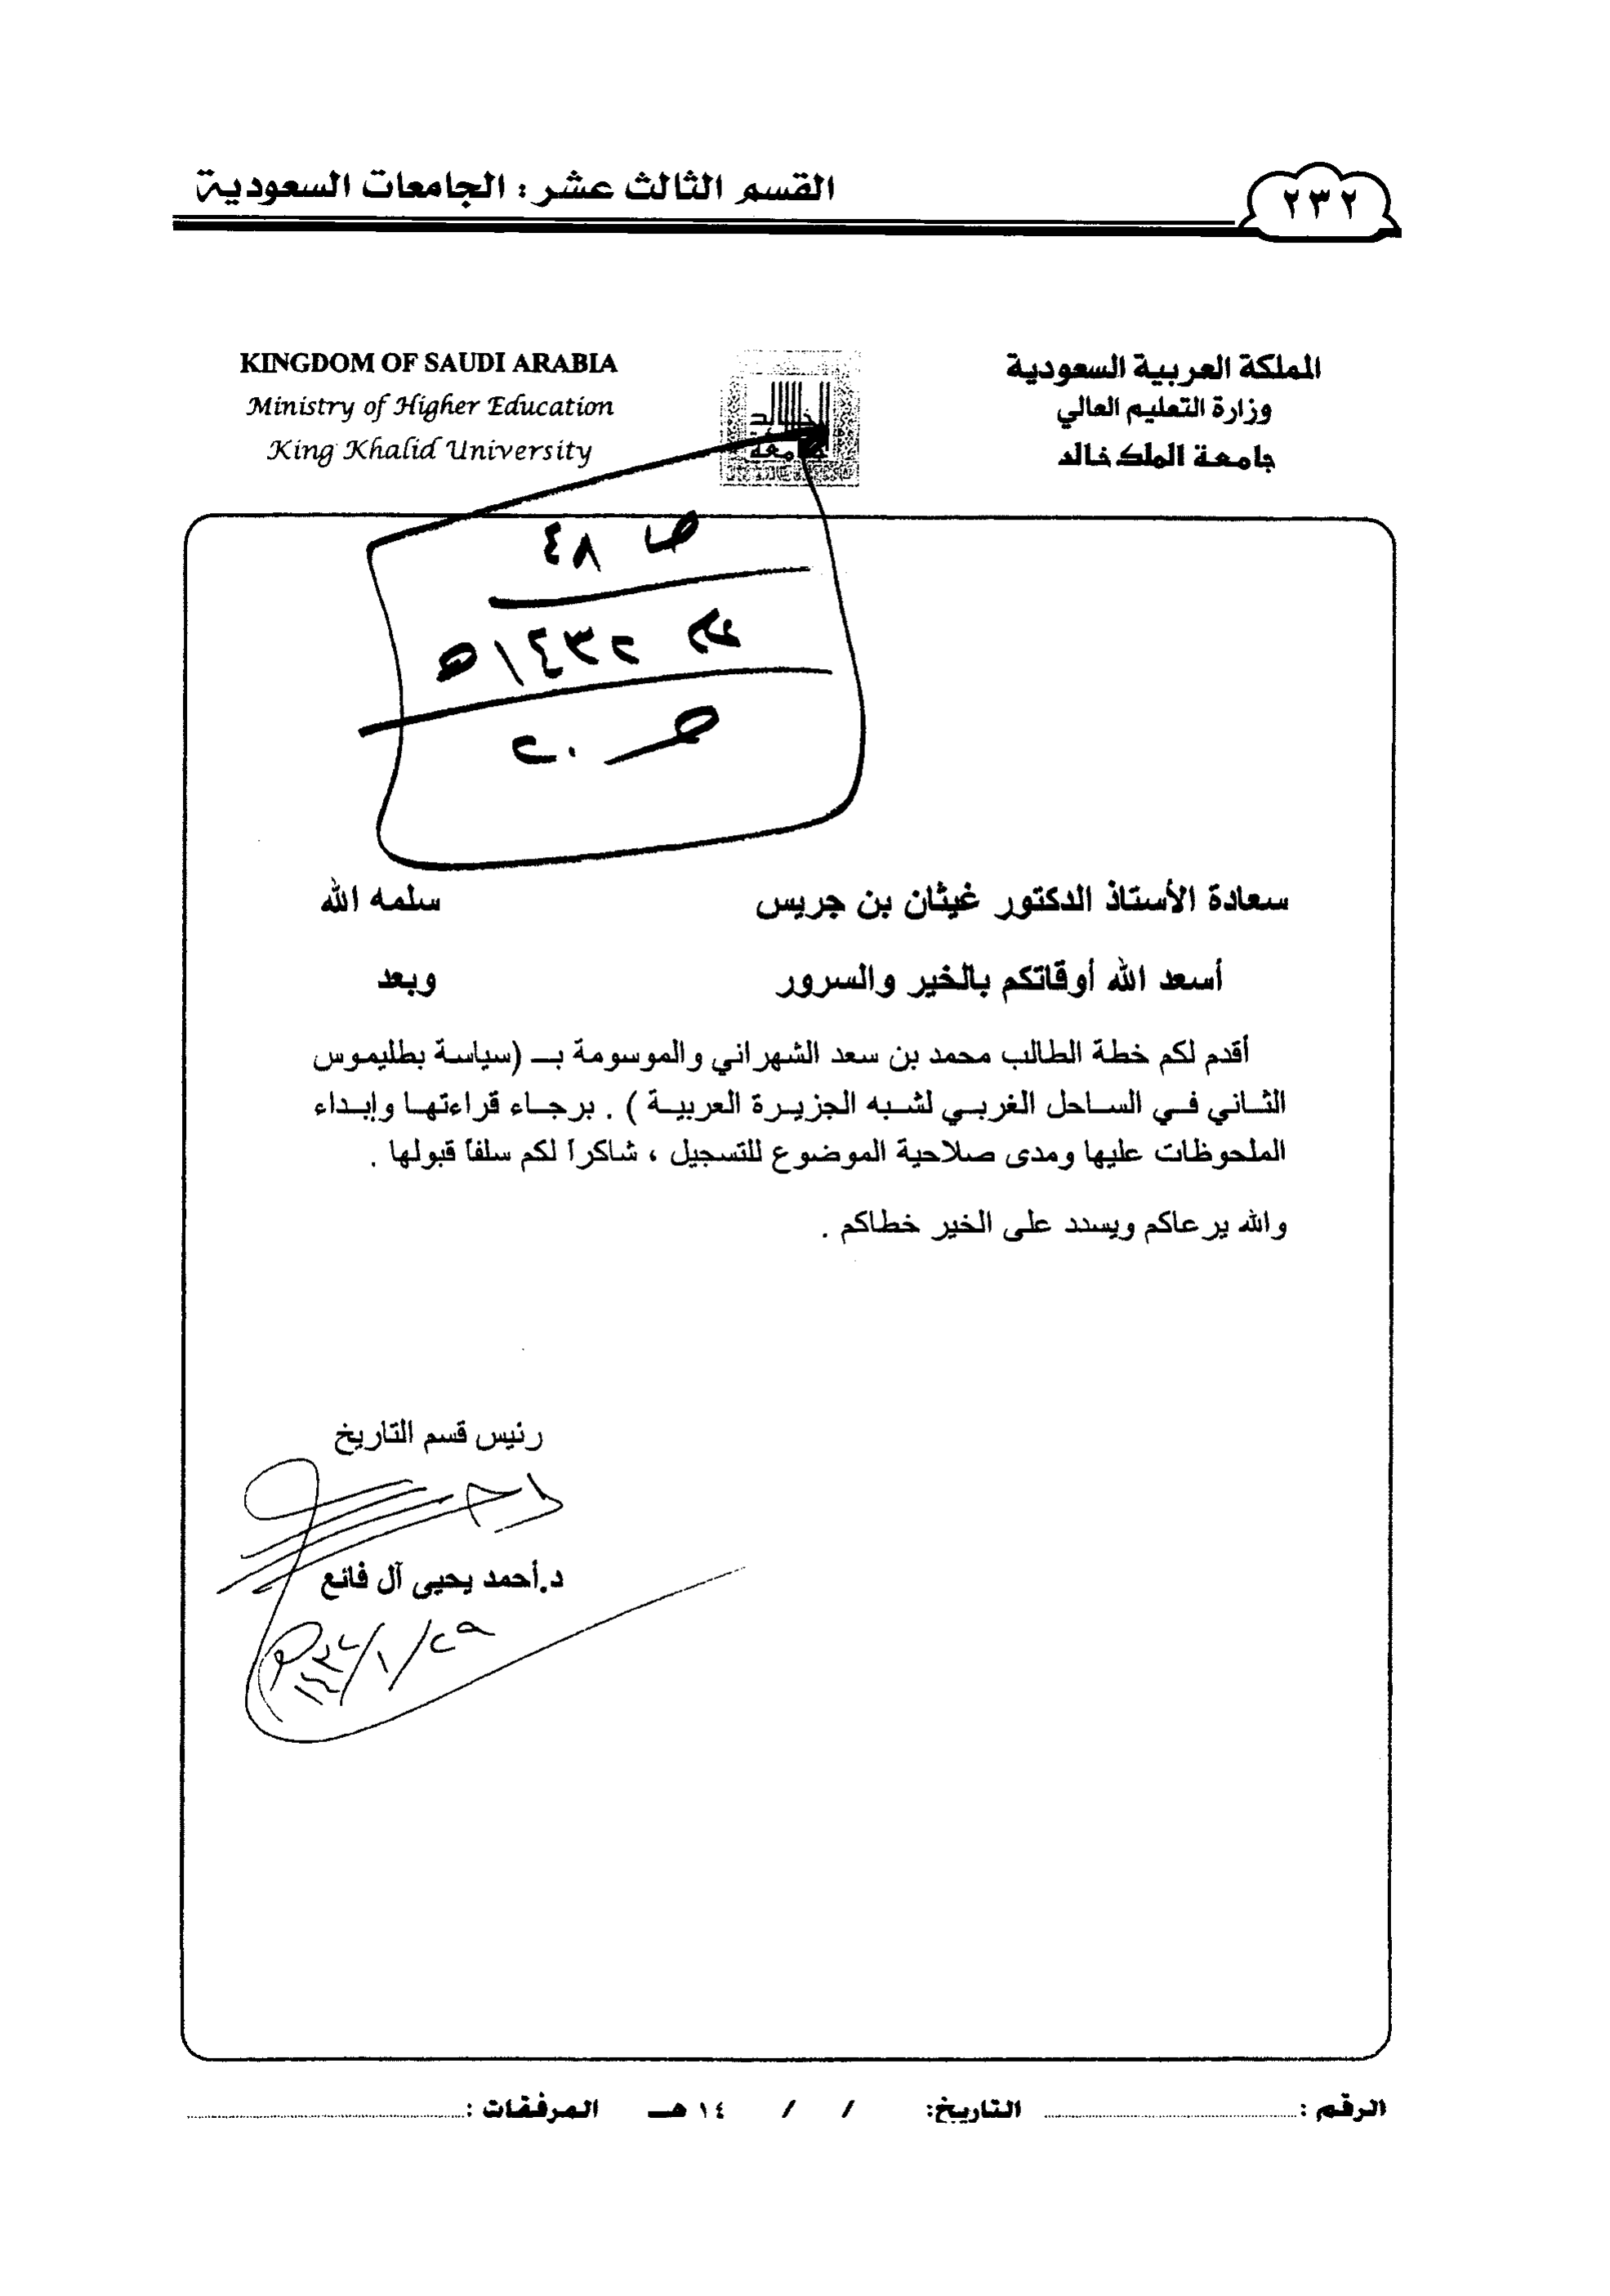 القسم الثالث عشر: الجامعات السعودية
٢٣٢
المملكة العربية السعودية
وزارة التعليم العالي
جامعة الملك خالد
KINGDOM OF SAUDI ARABIA
Ministry of Higher Education
King Khalid University
ص ٤٨
٥/٢٣٤
ص ٢٠
سعادة الأستاذ الدكتور غيثان بن جريس سلمه الله
أسعد الله أوقاتكم بالخير والسرور وبعد
أقدم لكم خطة الطالب محمد بن سعد الشهراني والموسومة بـ (سياسة بطليموس
الثاني في الساحل الغربي لشبه الجزيرة العربية ) . برجاء قراءتها وإبداء
الملحوظات عليها ومدى صلاحية الموضوع للتسجيل ، شاكراً لكم سلفاً قبولها .
والله يرعاكم ويسدد على الخير خطاكم .
رئيس قسم التاريخ
د.أحمد يحيى آل فائع
الرقم : التاريخ: / / ١٤هـ المرفقات :